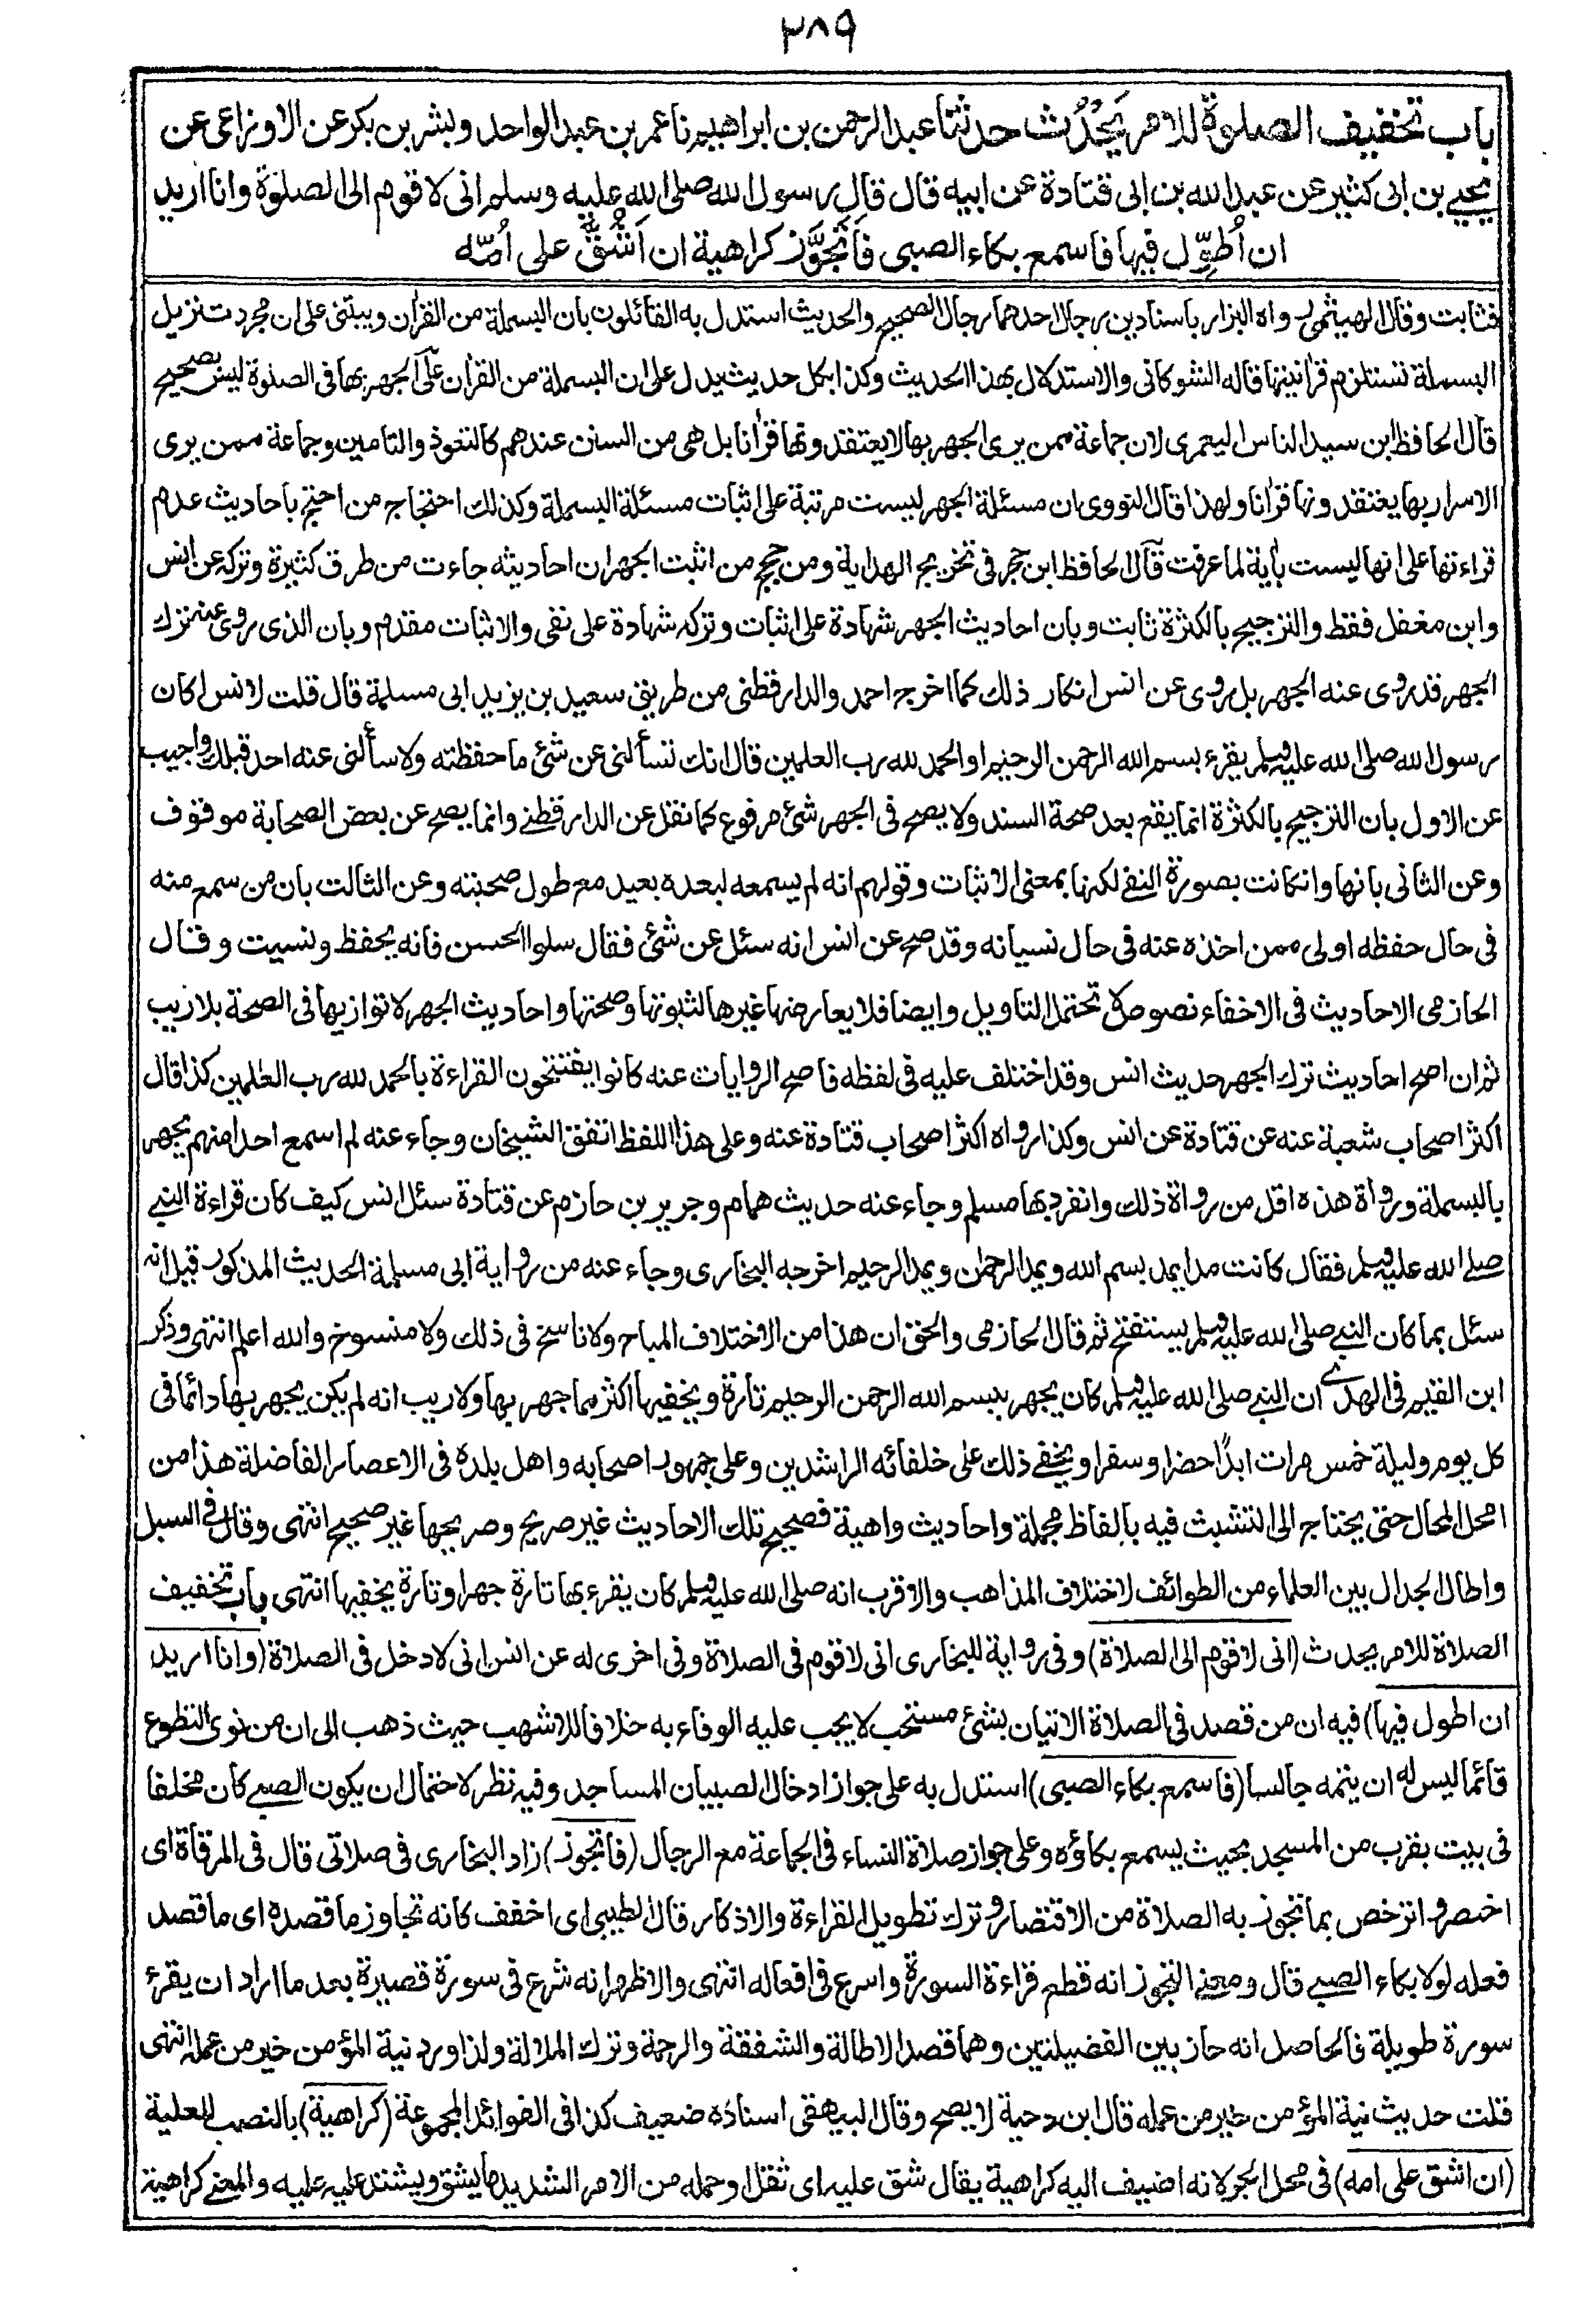 ٢٨٩
باب تخفيف الصلوة للامر يَحْدُث حدثنا عبد الرحمن بن ابراهيم نا عمر بن عبد الواحد وبشر بن بكر عن الاوزاعى عن
يحيى بن ابى كثير عن عبد الله بن ابى قتادة عن ابيه قال قال رسول الله صلى الله عليه وسلم انى لاقوم الى الصلوة وانا اريد
ان اُطوِّل فيها فاسمع بكاء الصبى فاَتَجوَّز كراهية ان اَشُقَّ على اُمّه
فثابت وقال الهيثمى رواه البزار باسنادين رجال احدهما رجال الصحيح والحديث استدل به القائلون بان البسملة من القرأن ويبتنى على ان مجرد تنزيل
البسملة تستلزم قرأنيتها قاله الشوكانى والاستدلال بهذا الحديث وكذا بكل حديث يدل على ان البسملة من القرأن على الجهر بها فى الصلوة ليس بصحيح
قال الحافظ ابن سيد الناس اليعمرى لان جماعة ممن يرى الجهر بها لا يعتقدونها قرأنا بل هى من السنن عندهم كالتعوذ والتامين وجماعة ممن يرى
الاسرار بها يعتقدونها قرأنا ولهذا قال النووى ان مسئلة الجهر ليست مرتبة على اثبات مسئلة البسملة وكذلك احتجاج من احتج باحاديث عدم
قراءتها على انها ليست بأية لما عرفت قال الحافظ ابن حجر فى تخريج الهداية ومن حجج من اثبت الجهر ان احاديثه جاءت من طرق كثيرة وتركه عن انس
وابن مغفل فقط والترجيح بالكثرة ثابت وبان احاديث الجهر شهادة على اثبات وتركه شهادة على نفى والاثبات مقدم وبان الذى روى عنه ترك
الجهر قد روى عنه الجهر بل روى عن انس انكار ذلك كما اخرجه احمد والدارقطنى من طريق سعيد بن يزيد ابى مسلمة قال قلت لانس اكان
رسول الله صلى الله عليه وسلم يقرء بسم الله الرحمن الرحيم او الحمد لله رب العلمين قال انك تسألنى عن شئ ما حفظته ولا سألنى عنه احد قبلك واجيب
عن الاول بان الترجيح بالكثرة انما يقع بعد صحة السند ولا يصح فى الجهر شئ مرفوع كما نقل عن الدارقطنى وانما يصح عن بعض الصحابة موقوف
وعن الثانى بانها وان كانت بصورة النفى لكنها بمعنى الاثبات وقولهم انه لم يسمعه لبعده بعيد مع طول صحبته وعن الثالث بان من سمع منه
فى حال حفظه اولى ممن اخذه عنه فى حال نسيانه وقد صح عن انس انه سئل عن شئ فقال سلوا الحسن فانه يحفظ ونسيت وقال
الحازمى الاحاديث فى الاخفاء نصوص لا تحتمل التاويل وايضا فلا يعارضها غيرها لثبوتها وصحتها واحاديث الجهر لا توازيها فى الصحة بلاريب
ثم ان اصح احاديث ترك الجهر حديث انس وقد اختلف عليه فى لفظه فاصح الروايات عنه كانوا يفتتحون القراءة بالحمد لله رب العلمين كذا قال
اكثر اصحاب شعبة عنه عن قتادة عن انس وكذا رواه اكثر اصحاب قتادة عنه وعلى هذا اللفظ اتفق الشيخان وجاء عنه لم اسمع احدا منهم يجهر
بالبسملة ورواة هذه اقل من رواة ذلك وانفرد بها مسلم وجاء عنه حديث همام وجرير بن حازم عن قتادة سئل انس كيف كان قراءة النبى
صلى الله عليه وسلم فقال كانت مدا يمد بسم الله ويمد الرحمان ويمد الرحيم اخرجه البخارى وجاء عنه من رواية ابى مسلمة الحديث المذكور قبل انه
سئل بما كان النبى صلى الله عليه وسلم يستفتح ثم قال الحازمى والحق ان هذا من الاختلاف المباح ولا ناسخ فى ذلك ولا منسوخ والله اعلم انتهى وذكر
ابن القيم فى الهدى ان النبى صلى الله عليه وسلم كان يجهر ببسم الله الرحمن الرحيم تارة ويخفيها اكثر مما جهر بها ولا ريب انه لم يكن يجهر بها دائما فى
كل يوم وليلة خمس مرات ابدًا حضرا وسفرا ويخفى ذلك على خلفائه الراشدين وعلى جمهور اصحابه واهل بلده فى الاعصار الفاضلة هذا من
امحل المحال حتى يحتاج الى التشبث فيه بالفاظ مجملة واحاديث واهية فصحيح تلك الاحاديث غير صريح وصريحها غير صحيح انتهى وقال فى السبل
واطال الجدال بين العلماء من الطوائف لاختلاف المذاهب والاقرب انه صلى الله عليه وسلم كان يقرء بها تارة جهرا وتارة يخفيها انتهى باب تخفيف
الصلاة للامر يحدث (انى لاقوم الى الصلاة) وفى رواية للبخارى انى لاقوم فى الصلاة وفى اخرى له عن انس انى لادخل فى الصلاة (وانا اريد
ان اطول فيها) فيه ان من قصد فى الصلاة الاتيان بشئ مستحب لا يجب عليه الوفاء به خلافا للاشهب حيث ذهب الى ان من نوى التطوع
قائما ليس له ان يتمه جالسا (فاسمع بكاء الصبى) استدل به على جواز ادخال الصبيان المساجد وفيه نظر لاحتمال ان يكون الصبى كان مخلفا
فى بيت بقرب من المسجد بحيث يسمع بكاؤه وعلى جواز صلاة النساء فى الجماعة مع الرجال (فاتجوز) زاد البخارى فى صلاتى قال فى المرقاة اى
اختصر واترخص بما تجوز به الصلاة من الاقتصار وترك تطويل القراءة والاذكار قال الطيبى اى اخفف كانه تجاوز ما قصده اى ما قصد
فعله لولا بكاء الصبى قال ومعنى التجوز انه قطع قراءة السورة واسرع فى افعاله انتهى والاظهر انه شرع فى سورة قصيرة بعد ما اراد ان يقرء
سورة طويلة فالحاصل انه حاز بين الفضيلتين وهما قصد الاطالة والشفقة والرحمة وترك الملالة ولذا ورد نية المؤمن خير من عمله انتهى
قلت حديث نية المؤمن خير من عمله قال ابن دحية لا يصح وقال البيهقى اسناده ضعيف كذا فى الفوائد المجموعة (كراهية) بالنصب للعلية
(ان اشق على امه) فى محل الجر لانه اضيف اليه كراهية يقال شق عليه اى ثقل وحمله من الامر الشديد ما يشق ويشتد عليه والمعنى كراهية